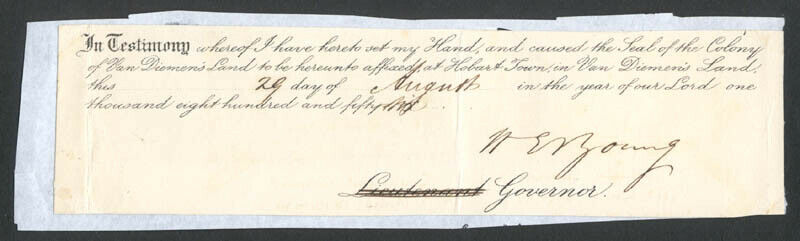 In Testimony whereof I have hereto set my Hand, and caused the Seal of the Colony
of Van Diemen's Land to be hereunto affixed, at Hobart Town, in Van Diemen's Land,
this 29 day of August in the year of our Lord one
thousand eight hundred and fifty six
H E F Young
Lieutenant Governor.